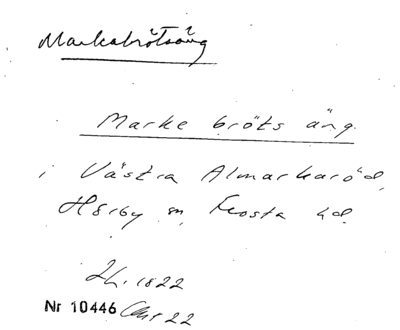 Markabrötsäng
Marke bröts äng.
i Västra Almarkaröd,
Hörby sn, Frosta hd.
1822
Nr 10446 22